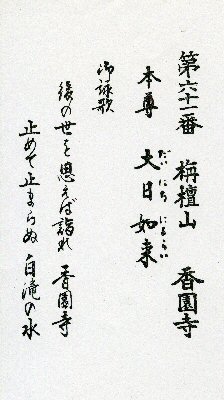 第六十一番 栴檀山 香園寺
本尊 大日如来
だいにちにょらい
御詠歌
後の世を思えば詣れ 香園寺
止めて止まらぬ 白滝の水